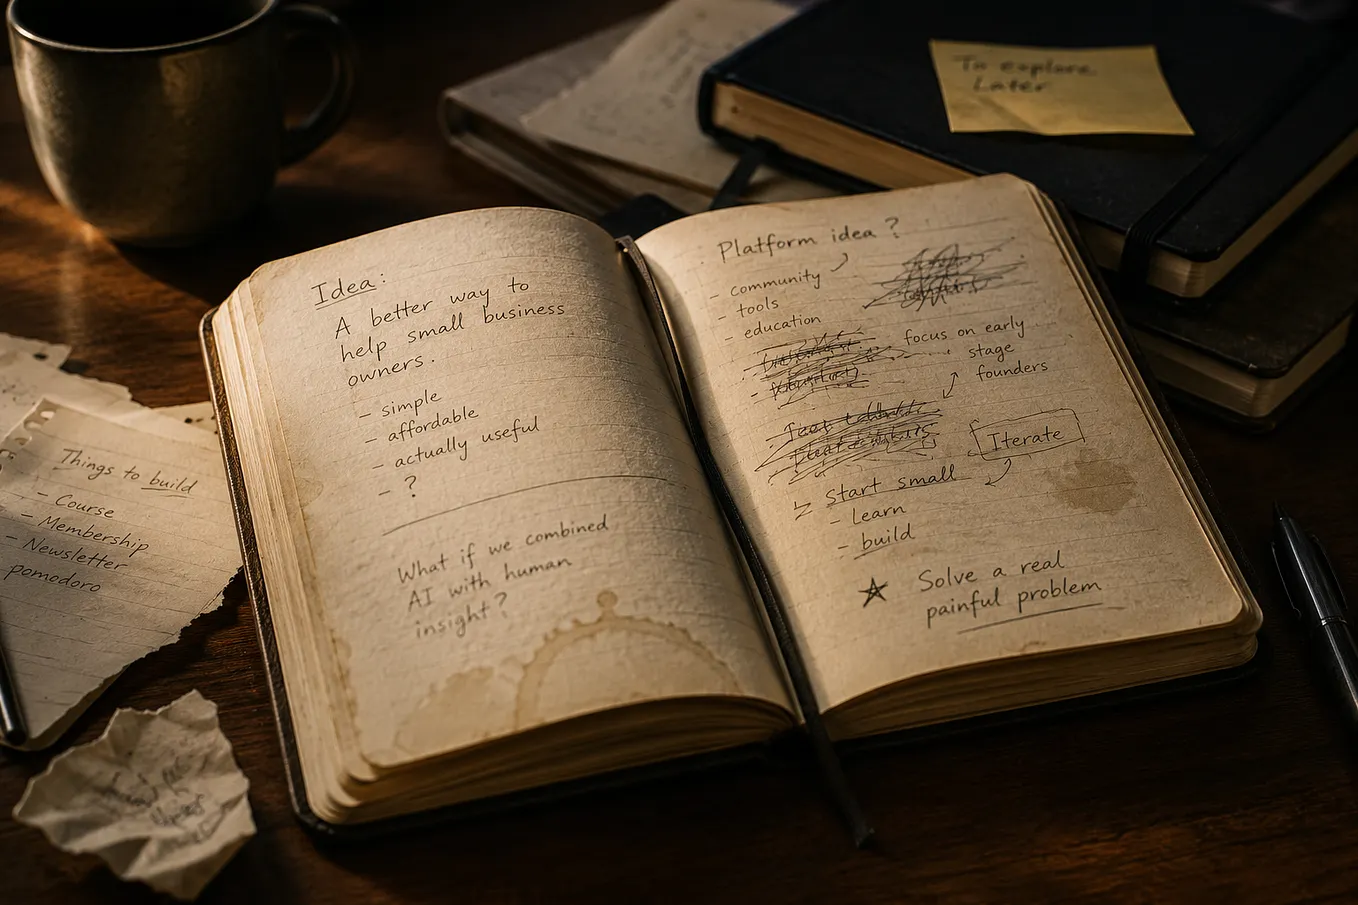 To explore
Later
Idea:
A better way to
help small business
owners.
- simple
- affordable
- actually useful
- ?
What if we combined
AI with human
insight?
Platform idea?
- community
- tools
- education
focus on early
stage
founders
Iterate
Start small
- Learn
- build
Solve a real
painful problem
Things to build
- Course
- Membership
- Newsletter
pomodoro